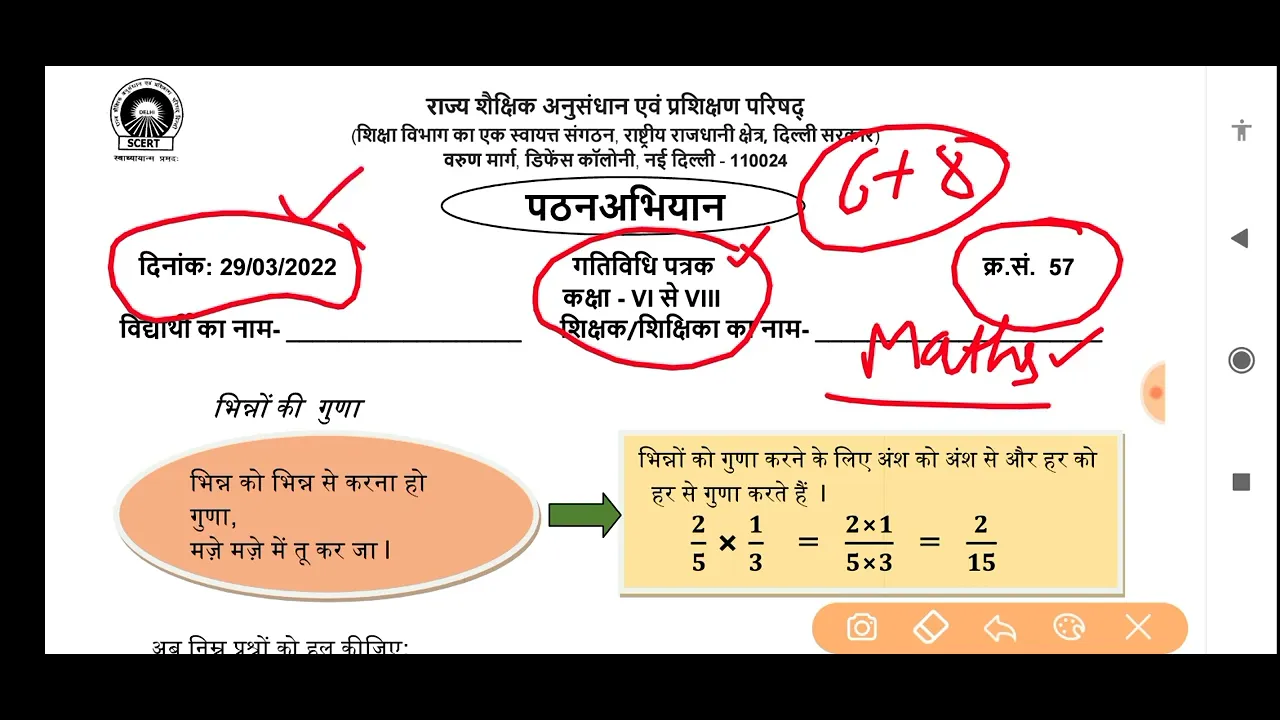 राज्य शैक्षिक अनुसंधान एवं प्रशिक्षण परिषद्
(शिक्षा विभाग का एक स्वायत्त संगठन, राष्ट्रीय राजधानी क्षेत्र, दिल्ली सरकार)
वरुण मार्ग, डिफेंस कॉलोनी, नई दिल्ली - 110024
DELHI
SCERT
पठनअभियान
6+8
दिनांक: 29/03/2022
गतिविधि पत्रक
क्र.सं. 57
कक्षा - VI से VIII
विद्यार्थी का नाम- शिक्षक/शिक्षिका का नाम-
Maths
भिन्नों की गुणा
भिन्न को भिन्न से करना हो
गुणा,
मज़े मज़े में तू कर जा।
भिन्नों को गुणा करने के लिए अंश को अंश से और हर को
हर से गुणा करते हैं ।
2/5 × 1/3 = 2×1/5×3 = 2/15
अब निम्न प्रश्नों को हल कीजिए: